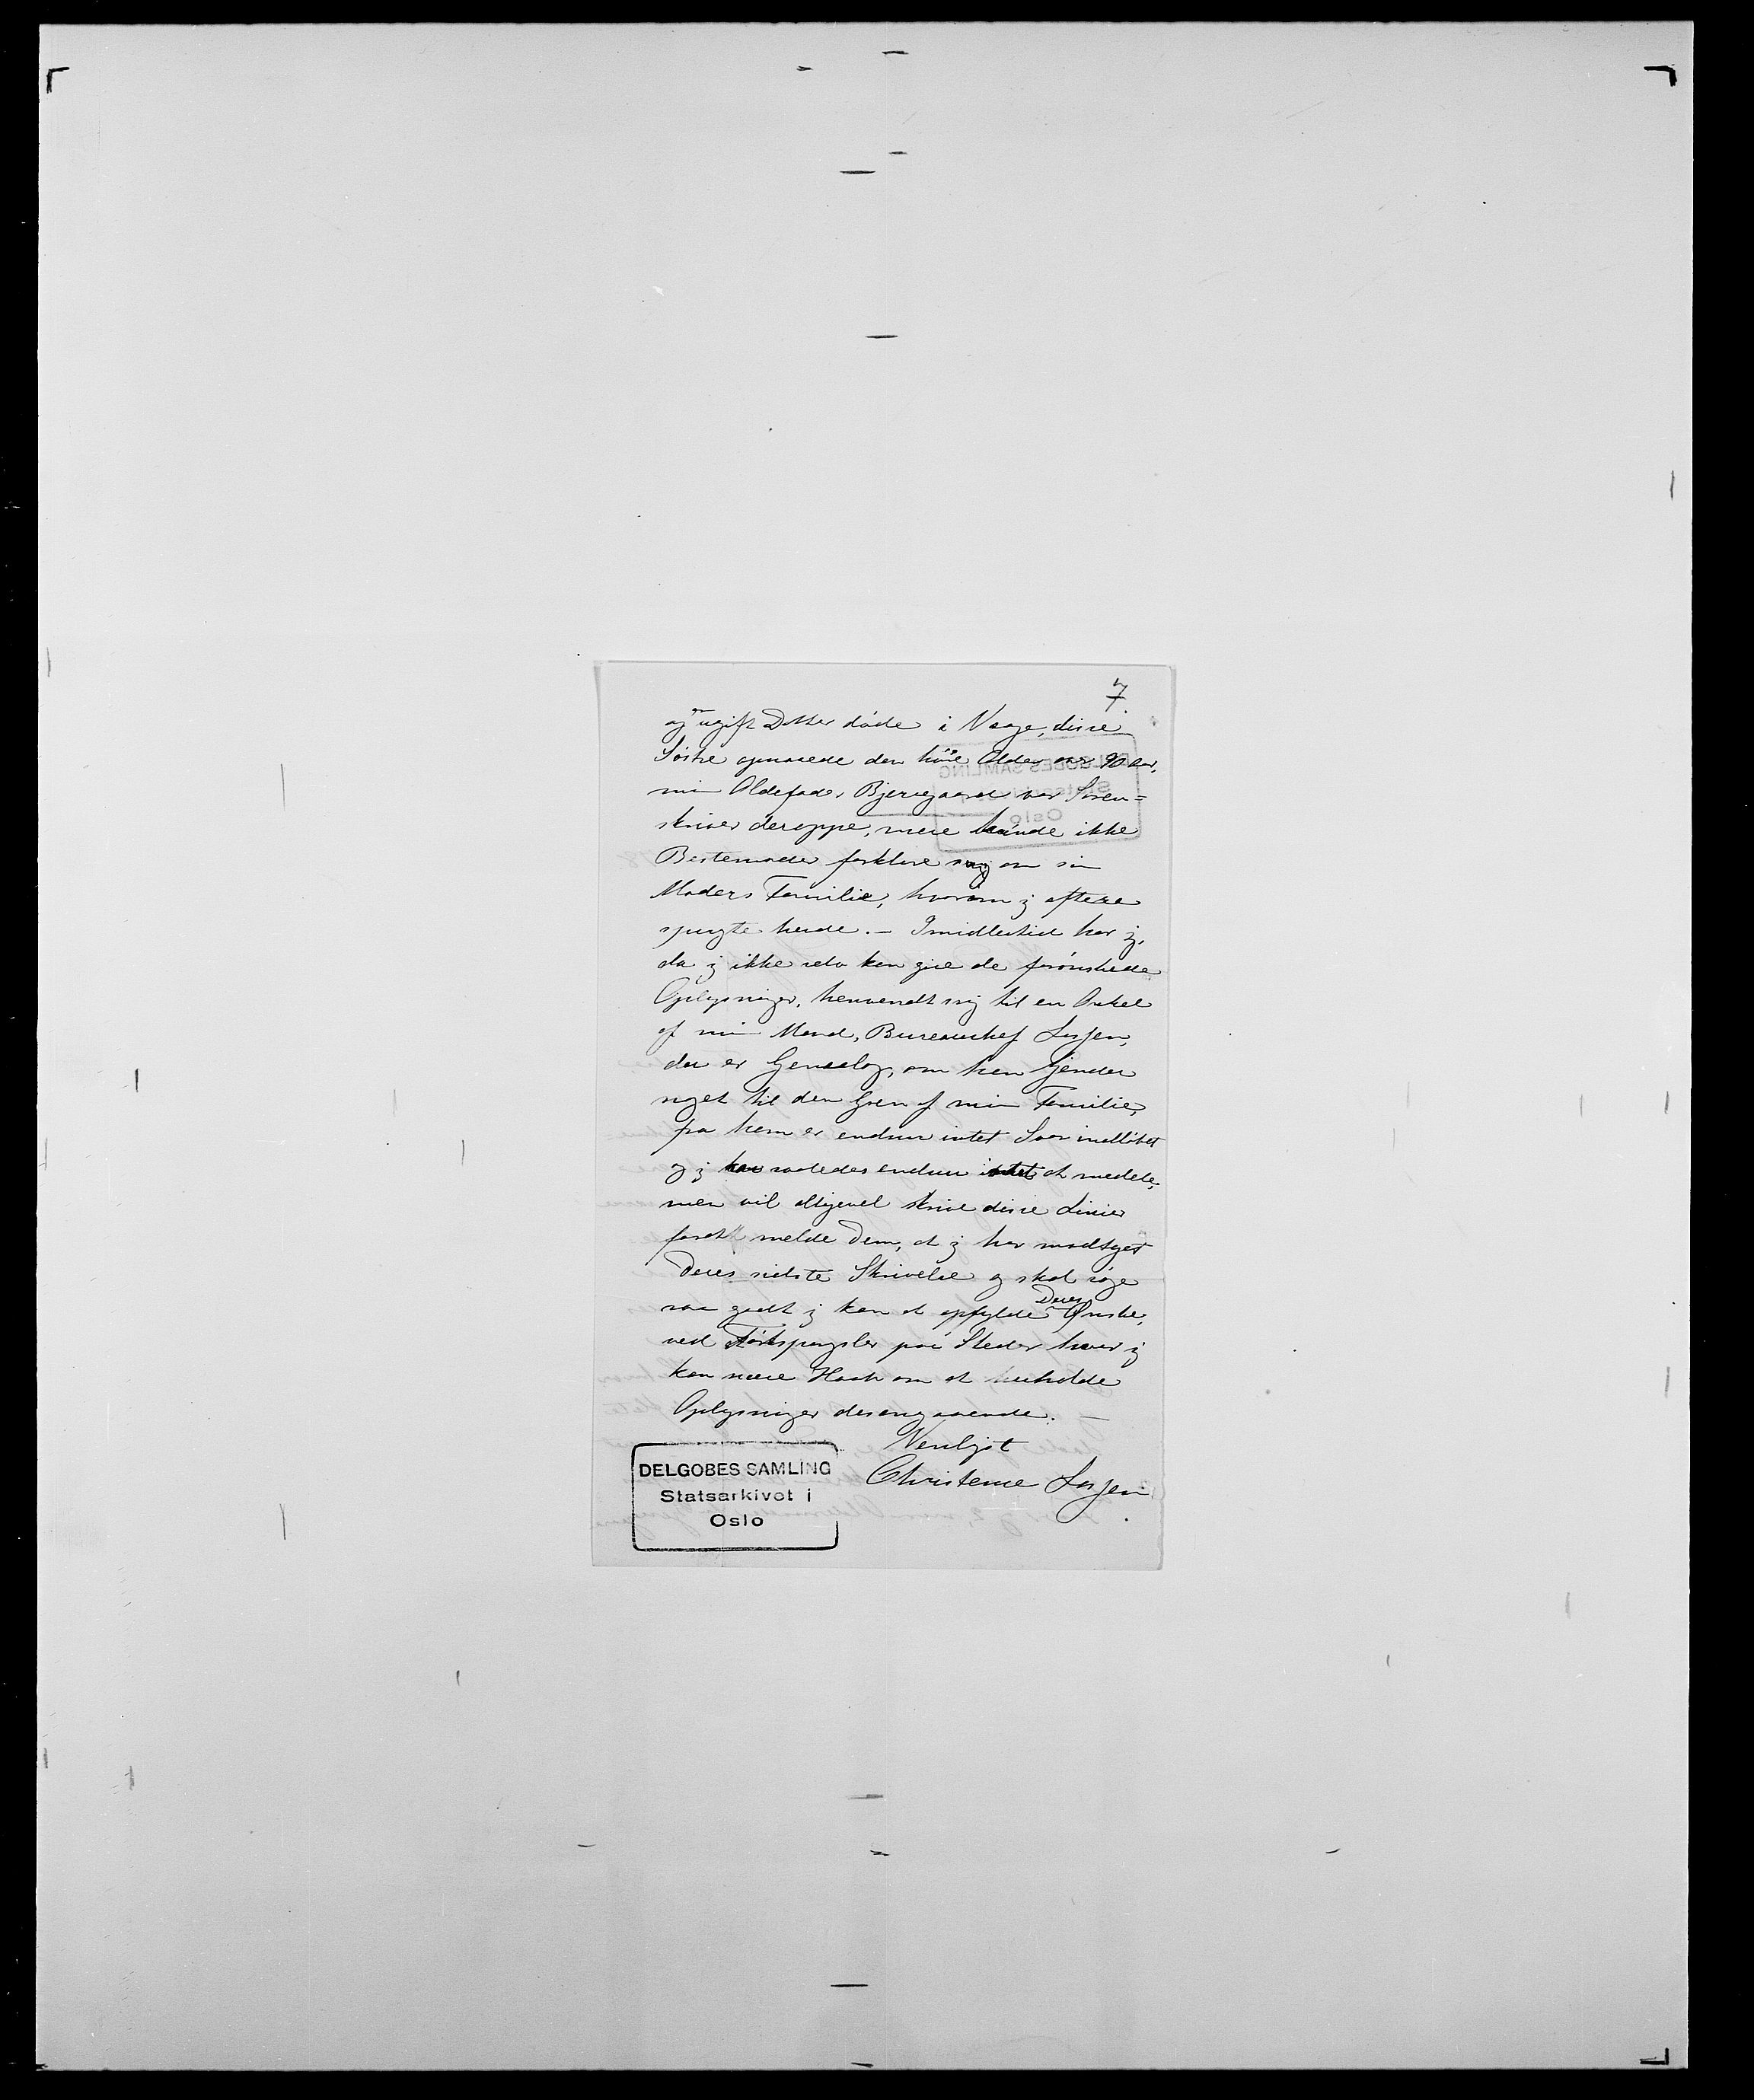 7
og en ugift Datter döde i Vaage, disse
Söstre opnaaede den höie Alder over 90 Aar,
min Oldefader Bjerregaard var Soren=
skriver deroppe, mere kunde ikke
Bestemoder forklare mig om sin
Moders Familie, hvorom jeg oftere
spurgte hende. – Imidlertid har jeg,
da jeg ikke selv kan give de forönskede
Oplysninger, henvendt mig til en Onkel
af min Mand, Bureauchef Lassen,
der er Genealog, om han kjender
noget til den Gren af min Familie,
fra ham er endnu intet Svar indlöbet
og jeg har saaledes endnu intet at meddele,
men vil alligevel skrive disse Linier
for at melde Dem, at jeg har modtaget
Deres sidste Skrivelse og skal söge
saa godt jeg kan at opfylde Deres Ønske,
ved Forespörgsler paa Steder hvor jeg
kan nære Haab om at erholde
Oplysninger desangaaende. –
Venligst
Christence Lassen
DELGOBES SAMLING
Statsarkivet i
Oslo